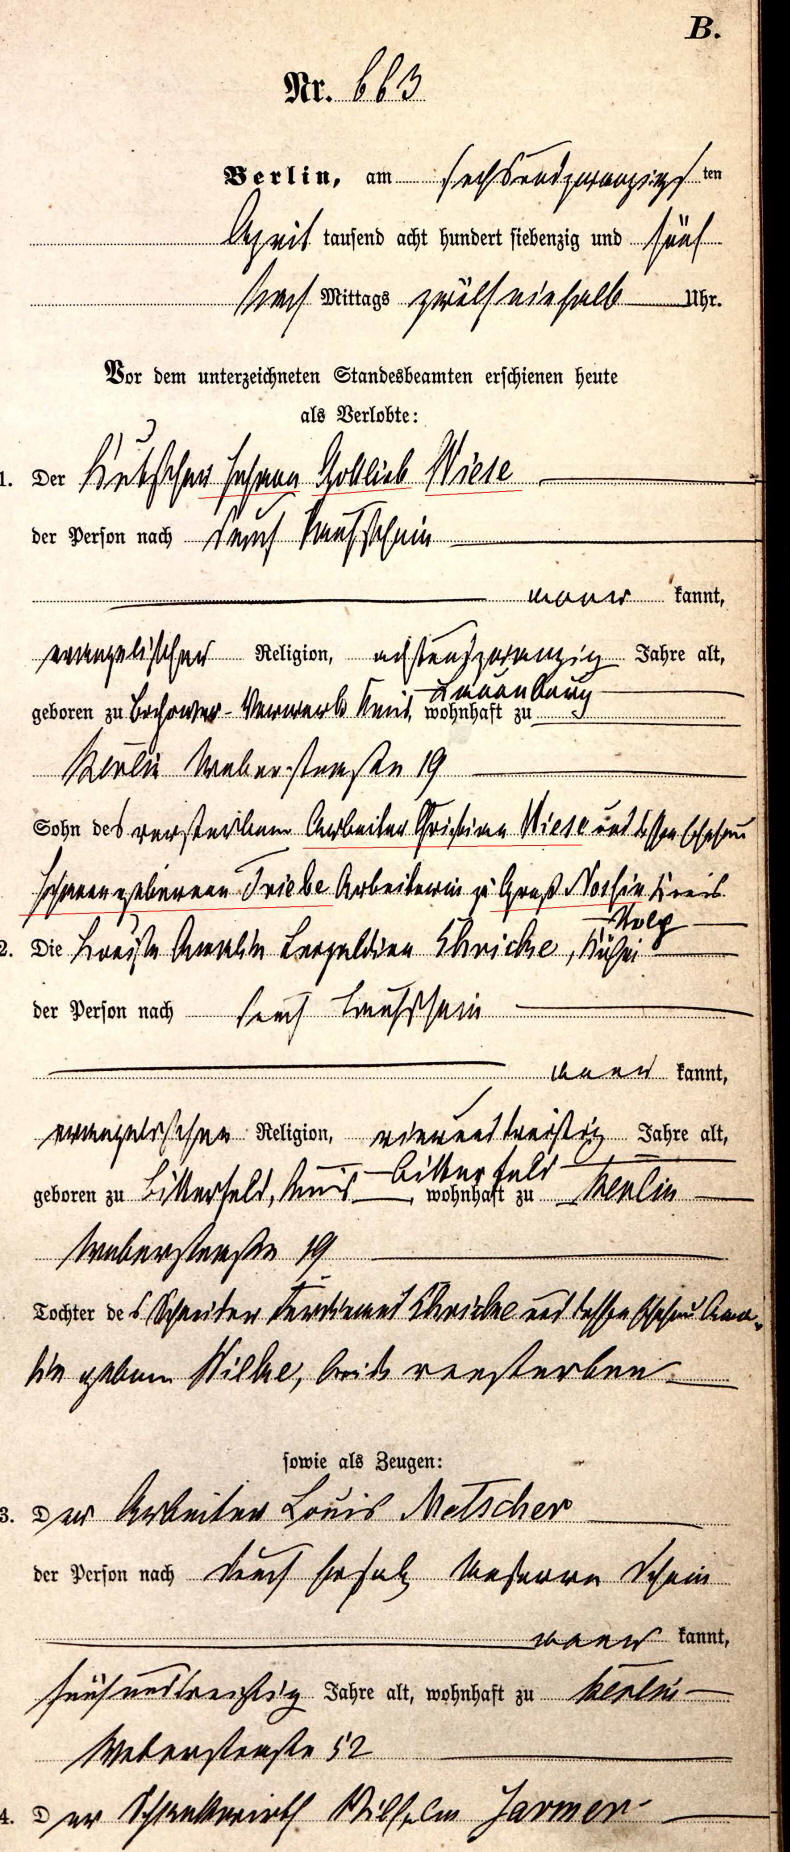 B.
Nr. 663
Berlin, am sechsundzwanzigsten
April tausend acht hundert siebenzig und fünf
Nach Mittags zwölf einhalb Uhr.
Vor dem unterzeichneten Standesbeamten erschienen heute
als Verlobte:
1. Der Kutscher Johann Gottlieb Wiese
der Person nach durch Taufschein
aner kannt,
evangelischer Religion, achtundzwanzig Jahre alt,
Lauenburg
geboren zu Vorwerk Kreis, wohnhaft zu
Berlin Weberstraße 19
Sohn des verstorbenen Arbeiter Christian Wiese und dessen Ehefrau
Johanna geborenen Triebe Arbeiterin zu Groß Nossin Kreis
Stolp
2. Die Louise Amalie Leopoldine Ehricke,
der Person nach durch Taufschein
aner kannt,
evangelischen Religion, vierunddreißig Jahre alt,
Bitterfeld
geboren zu Bitterfeld, Kreis, wohnhaft zu Berlin
Weberstraße 19
Tochter des Schneider Ferdinand Ehricke und dessen Ehefrau Ama-
lie geboren Wilke, beide verstorben
sowie als Zeugen:
3. Der Arbeiter Louis Metscher
der Person nach durch Schein
aner kannt,
fünfunddreißig Jahre alt, wohnhaft zu Berlin
Weberstraße 52
4. Der Schankwirth Wilhelm Jarmer